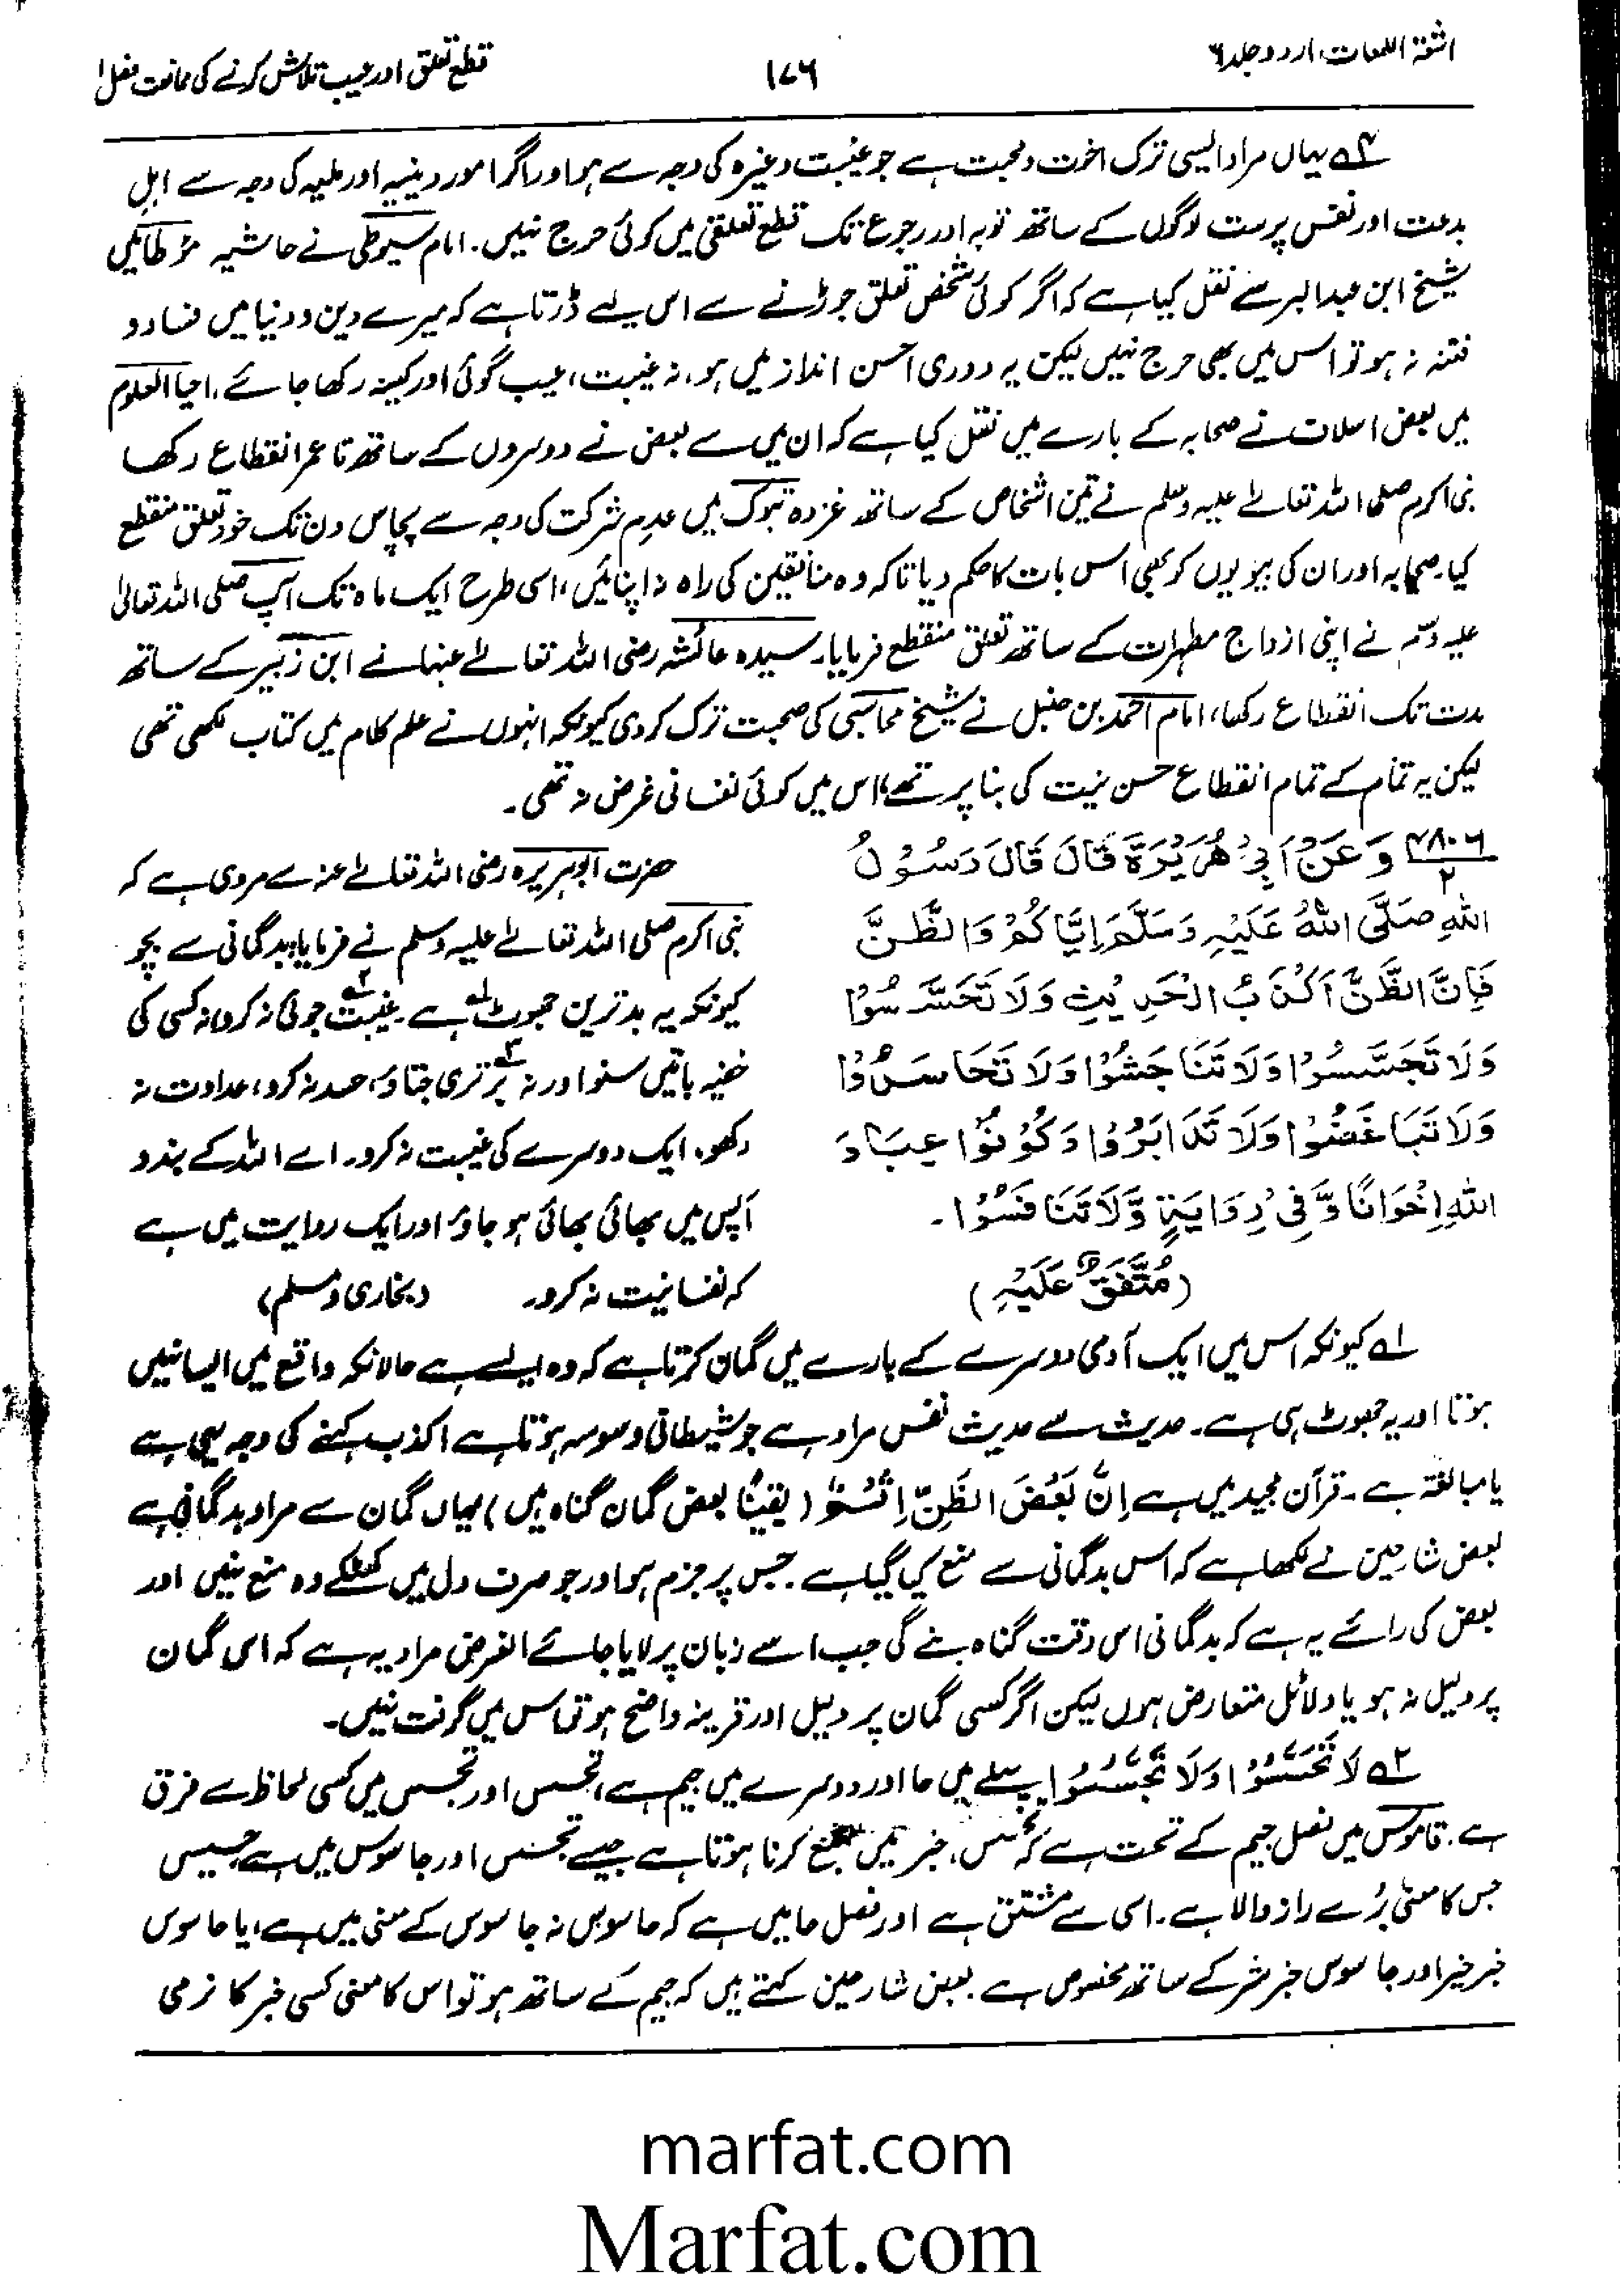 اشعۃ اللمعات اردو جلد ۶
۱۷۶
قطع تعلق اور عیب تلاش کرنے کی ممانعت فصل ۱
۴ یہاں مراد ایسی ترک اخوت و محبت ہے جو غیبت وغیرہ کی وجہ سے ہو اور اگر امور دینیہ اور ملیہ کی وجہ سے اہلِ
بدعت اور نفس پرست لوگوں کے ساتھ توبہ اور رجوع تک قطع تعلقی میں کوئی حرج نہیں۔ امام سیوطی نے حاشیہ مؤطا میں
شیخ ابن عبدالبر سے نقل کیا ہے کہ اگر کوئی شخص تعلق جوڑنے سے اس لیے ڈرتا ہے کہ میرے دین و دنیا میں فساد و
فتنہ نہ ہو تو اس میں بھی حرج نہیں لیکن یہ دوری احسن انداز میں ہو، نہ غیبت، عیب گوئی اور کینہ رکھا جائے، احیاء العلوم
میں بعض اسلاف نے صحابہ کے بارے میں نقل کیا ہے کہ ان میں سے بعض نے دوسروں کے ساتھ تا عمر انقطاع رکھا
نبی اکرم صلی اللہ تعالےٰ علیہ وسلم نے تین اشخاص کے ساتھ غزوہ تبوک میں عدم شرکت کی وجہ سے پچاس دن تک خود تعلق منقطع
کیا۔ صحابہ اور ان کی بیویوں کو بھی اس بات کا حکم دیا تاکہ وہ منافقین کی راہ نہ اپنائیں، اسی طرح ایک ماہ تک آپ صلی اللہ تعالیٰ
علیہ وسلم نے اپنی ازواج مطہرات کے ساتھ تعلق منقطع فرمایا۔ سیدہ عائشہ رضی اللہ تعالےٰ عنہا نے ابن زبیر کے ساتھ
مدت تک انقطاع رکھا، امام احمد بن حنبل نے شیخ محاسبی کی صحبت ترک کر دی کیونکہ انہوں نے علم کلام میں کتاب لکھی تھی
لیکن یہ تمام کے تمام انقطاع حسن نیت کی بنا پر تھے، اس میں کوئی نفسانی غرض نہ تھی۔
۴۸۰۶
۲
وَ عَنْ اَبِیْ هُرَیْرَةَ قَالَ قَالَ رَسُوْلُ
اللهِ صَلَّی اللهُ عَلَیْهِ وَسَلَّمَ اِیَّاکُمْ وَالظَّنَّ
فَاِنَّ الظَّنَّ اَکْذَبُ الْحَدِیْثِ وَلَا تَحَسَّسُوْا
وَلَا تَجَسَّسُوْا وَلَا تَنَاجَشُوْا وَلَا تَحَاسَدُوْا
وَلَا تَبَاغَضُوْا وَلَا تَدَابَرُوْا وَکُوْنُوْا عِبَادَ
اللهِ اِخْوَانًا وَّفِیْ رِوَایَةٍ وَّلَا تَنَافَسُوْا۔
(مُتَّفَقٌ عَلَیْهِ)
حضرت ابوہریرہ رضی اللہ تعالےٰ عنہ سے مروی ہے کہ
نبی اکرم صلی اللہ تعالےٰ علیہ وسلم نے فرمایا، بدگمانی سے بچو
کیونکہ یہ بدترین جھوٹ۱ ہے۔ غیبت۲ جوئی نہ کرو نہ کسی کی
خفیہ باتیں سنو اور نہ برتری۳ جتاؤ، حسد نہ کرو، عداوت نہ
رکھو، ایک دوسرے کی غیبت نہ کرو۔ اے اللہ کے بندو
آپس میں بھائی بھائی ہو جاؤ اور ایک روایت میں ہے
کہ نفسانیت نہ کرو۔ (بخاری و مسلم)
۱ کیونکہ اس میں ایک آدمی دوسرے کے بارے میں گمان کرتا ہے کہ وہ ایسے ہے حالانکہ واقع میں ایسا نہیں
ہوتا اور یہ جھوٹ ہی ہے۔ حدیث سے حدیث نفس مراد ہے جو شیطانی وسوسہ ہوتا ہے اکذب کہنے کی وجہ یہی ہے
یا مبالغۃ ہے۔ قرآن مجید میں ہے اِنَّ بَعْضَ الظَّنِّ اِثْمٌ (یقیناً بعض گمان گناہ ہیں) یہاں گمان سے مراد بدگمانی ہے
بعض شارحین نے لکھا ہے کہ اس بدگمانی سے منع کیا گیا ہے۔ جس پر جزم ہو اور جو صرف دل میں کھٹکے وہ منع نہیں اور
بعض کی رائے یہ ہے کہ بدگمانی اس وقت گناہ بنے گی جب اسے زبان پر لایا جائے الغرض مراد یہ ہے کہ اس گمان
پر دلیل نہ ہو یا دلائل متعارض ہوں لیکن اگر کسی گمان پر دلیل اور قرینہ واضح ہو تو اس میں گرفت نہیں۔
۲ لَا تَحَسَّسُوْا وَلَا تَجَسَّسُوْا پہلے میں حا اور دوسرے میں جیم ہے، تحسس اور تجسس میں کسی لحاظ سے فرق
ہے۔ قاموس میں فصل جیم کے تحت ہے کہ جس، خبر کرنا ہوتا ہے جیسے تجسس اور جاسوس میں ہے جسیس
جس کا معنیٰ بُرے راز والا ہے۔ اسی سے مشتق ہے اور فصل حا میں ہے کہ حاسوس نہ جاسوس کے معنی میں ہے، یا حاسوس
خبر خیر اور جاسوس خبر شر کے ساتھ مخصوص ہے۔ بعض شارحین کہتے ہیں کہ جیم کے ساتھ ہو تو اس کا معنی کسی خبر کا نرمی
marfat.com
Marfat.com